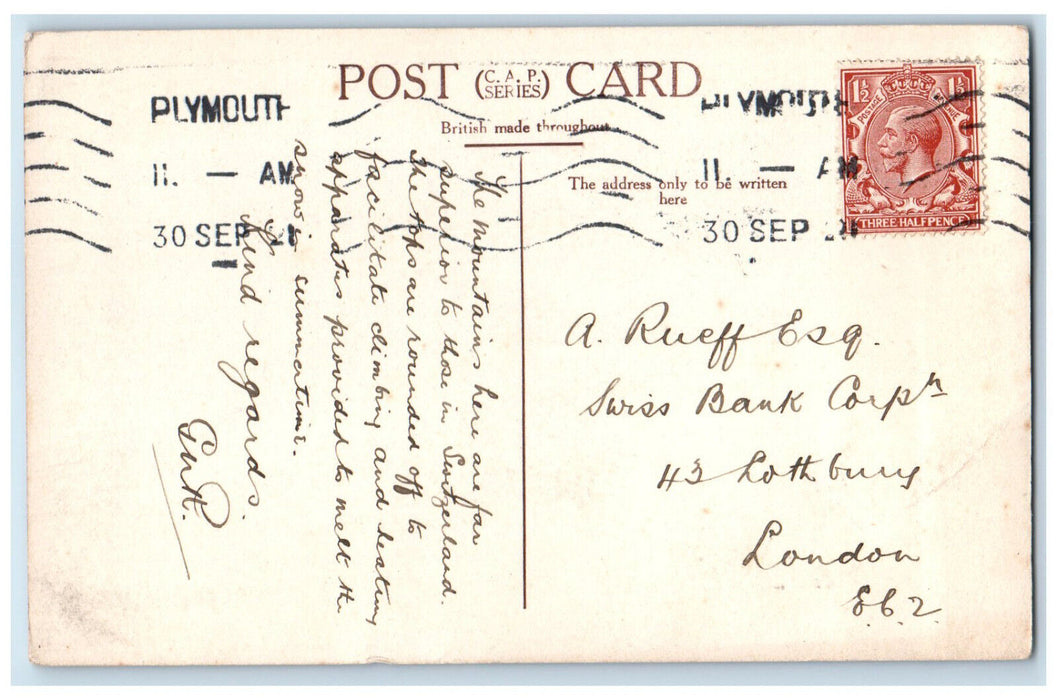 POST (C. A. P. SERIES) CARD
British made throughout
The address only to be written
here
PLYMOUTH
11. — AM
30 SEP
PLYMOUTH
11. — AM
30 SEP
1½ 1½
POSTAGE
THREE HALFPENCE
The mountains here are far
superior to those in Switzerland.
The tops are rounded off to
facilitate climbing and heating
apparatus provided to melt the
snow in summertime.
Kind regards.
A. Rueff Esq.
Swiss Bank Corpn
43 Lothbury
London
E.C.2